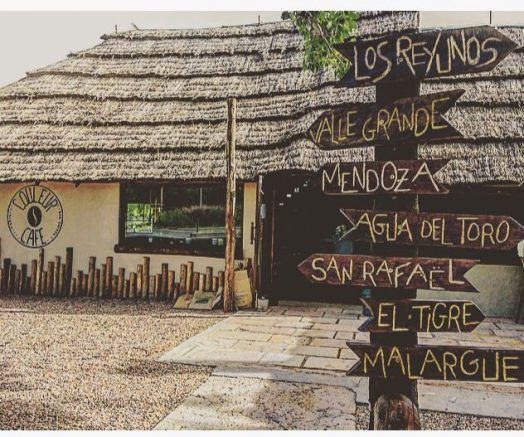 COULEUR
CAFE
LOS REYUNOS
VALLE GRANDE
MENDOZA
AGUA DEL TORO
SAN RAFAEL
EL TIGRE
MALARGUE